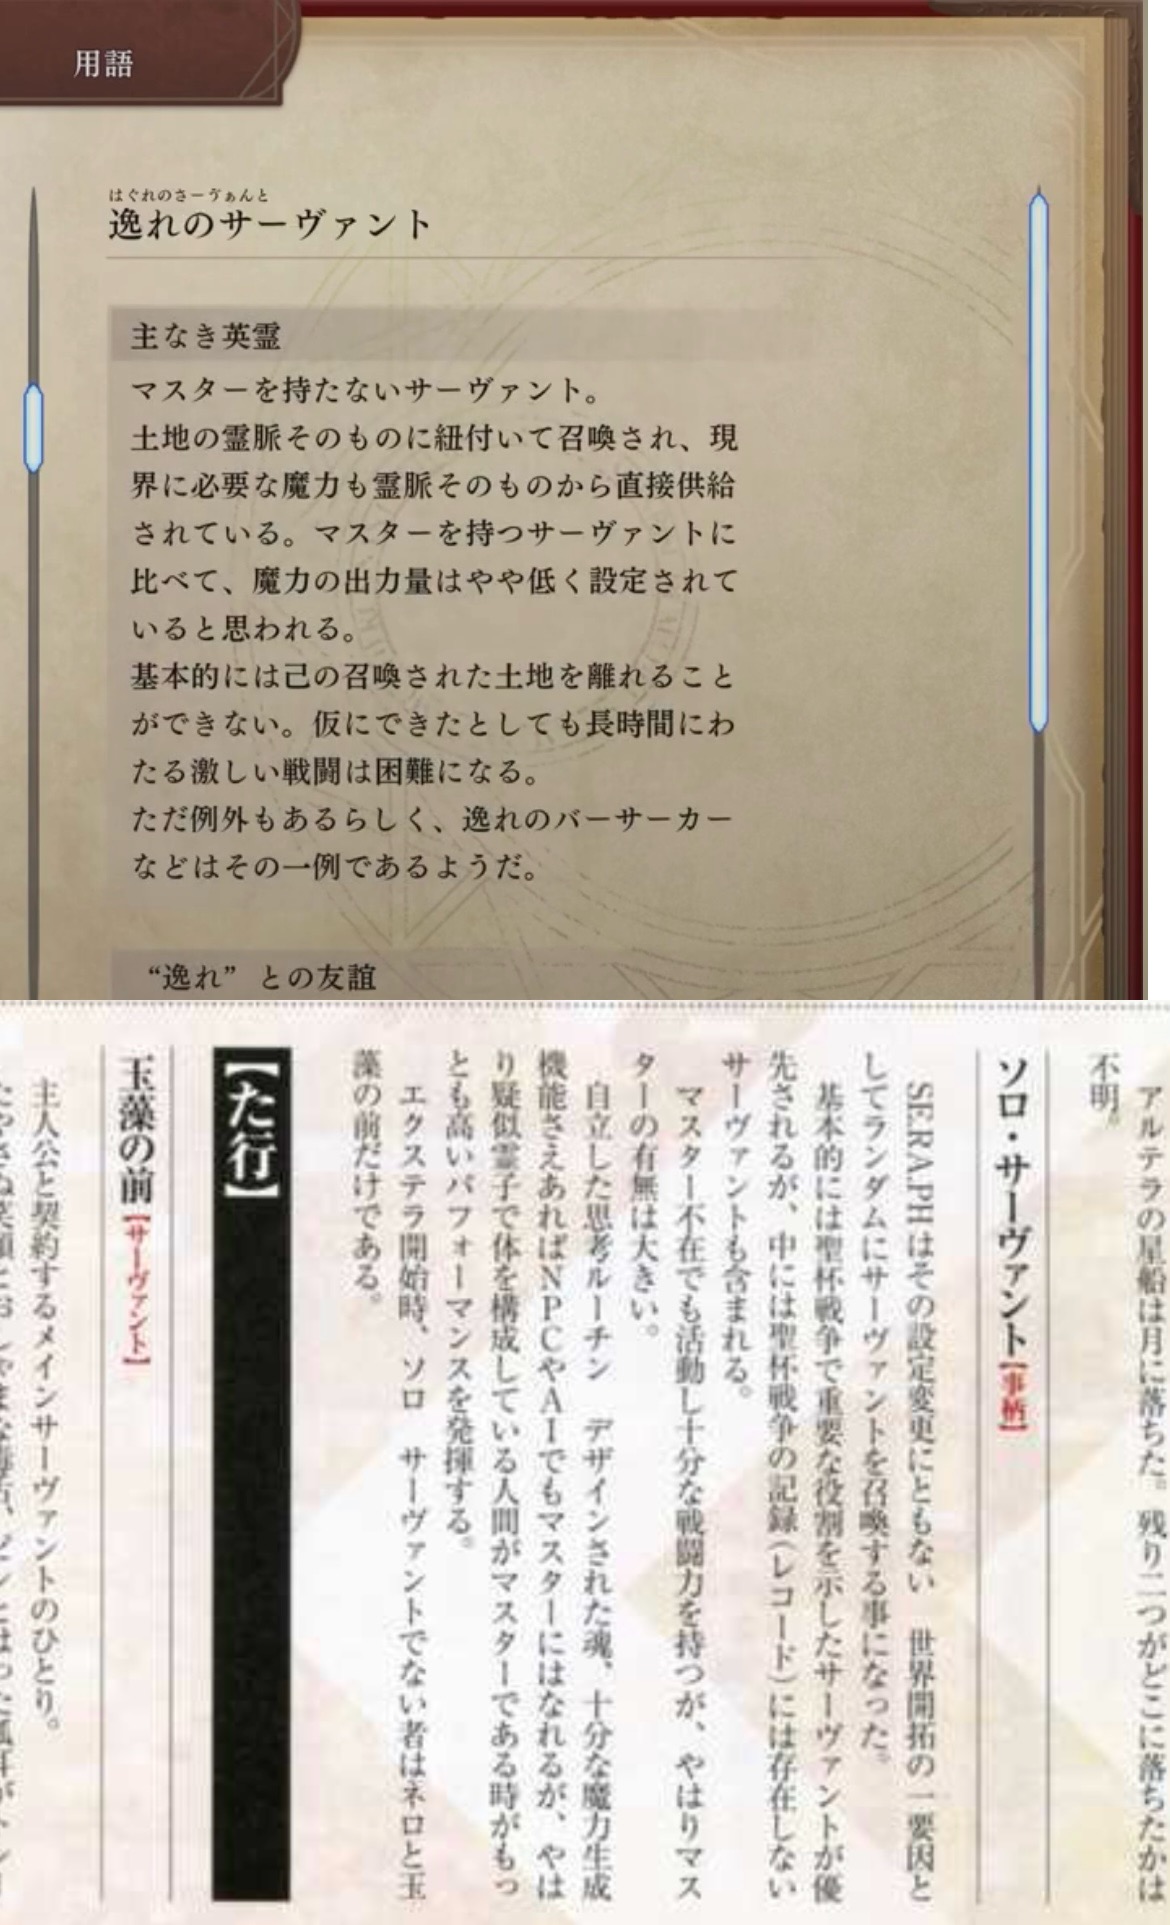 用語
はぐれのさーゔぁんと
逸れのサーヴァント
主なき英霊
マスターを持たないサーヴァント。
土地の霊脈そのものに紐付いて召喚され、現
界に必要な魔力も霊脈そのものから直接供給
されている。マスターを持つサーヴァントに
比べて、魔力の出力量はやや低く設定されて
いると思われる。
基本的には己の召喚された土地を離れること
ができない。仮にできたとしても長時間にわ
たる激しい戦闘は困難になる。
ただ例外もあるらしく、逸れのバーサーカー
などはその一例であるようだ。
“逸れ” との友誼
アルテラの星船は月に落ちた。残り二つがどこに落ちたかは
不明。
ソロ・サーヴァント【事柄】
SE.RA.PHはその設定変更にともない 世界開拓の一要因と
してランダムにサーヴァントを召喚する事になった。
基本的には聖杯戦争で重要な役割を示したサーヴァントが優
先されるが、中には聖杯戦争の記録(レコード)には存在しない
サーヴァントも含まれる。
マスター不在でも活動し十分な戦闘力を持つが、やはりマス
ターの有無は大きい。
自立した思考ルーチン デザインされた魂、十分な魔力生成
機能さえあればNPCやAIでもマスターにはなれるが、やは
り疑似霊子で体を構成している人間がマスターである時がもっ
とも高いパフォーマンスを発揮する。
エクステラ開始時、ソロ サーヴァントでない者はネロと玉
藻の前だけである。
【た行】
玉藻の前【サーヴァント】
主人公と契約するメインサーヴァントのひとり。